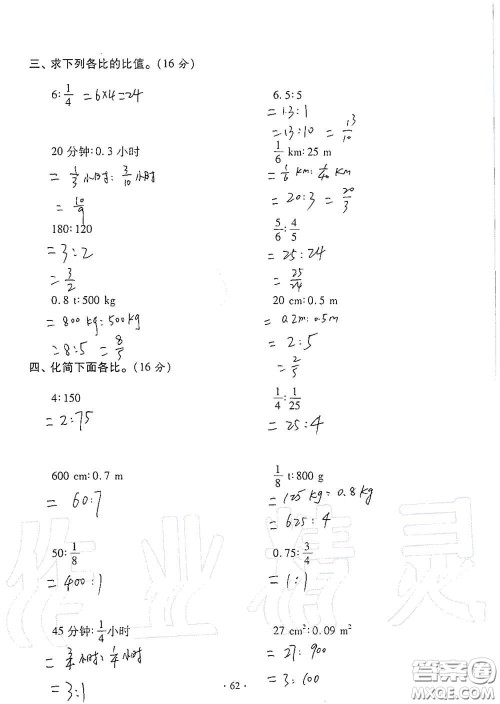 三、求下列各比的比值。(16 分)
6:1/4 = 6×4 = 24
6.5:5
= 13:1
= 13:10 = 13/10
20 分钟:0.3 小时
= 1/3 小时:3/10 小时
= 10/9
1/6 km:25 m
= 1/6 km:1/40 km
= 20:3 = 20/3
180:120
= 3:2
= 3/2
5/6:4/5
= 25:24
= 25/24
0.8 t:500 kg
= 800 kg:500 kg
= 8:5 = 8/5
20 cm:0.5 m
= 0.2m:0.5m
= 2:5
= 2/5
四、化简下面各比。(16 分)
4:150
= 2:75
1/4:1/25
= 25:4
600 cm:0.7 m
= 60:7
1/8 t:800 g
= 125 kg = 0.8 kg
= 625:4
50:1/8
= 400:1
0.75:3/4
= 1:1
45 分钟:1/4 小时
= 3/4 小时:1/4 小时
= 3:1
27 cm²:0.09 m²
= 27:900
= 3:100
· 62 ·
作业精灵
作业精灵
MXQE.COM